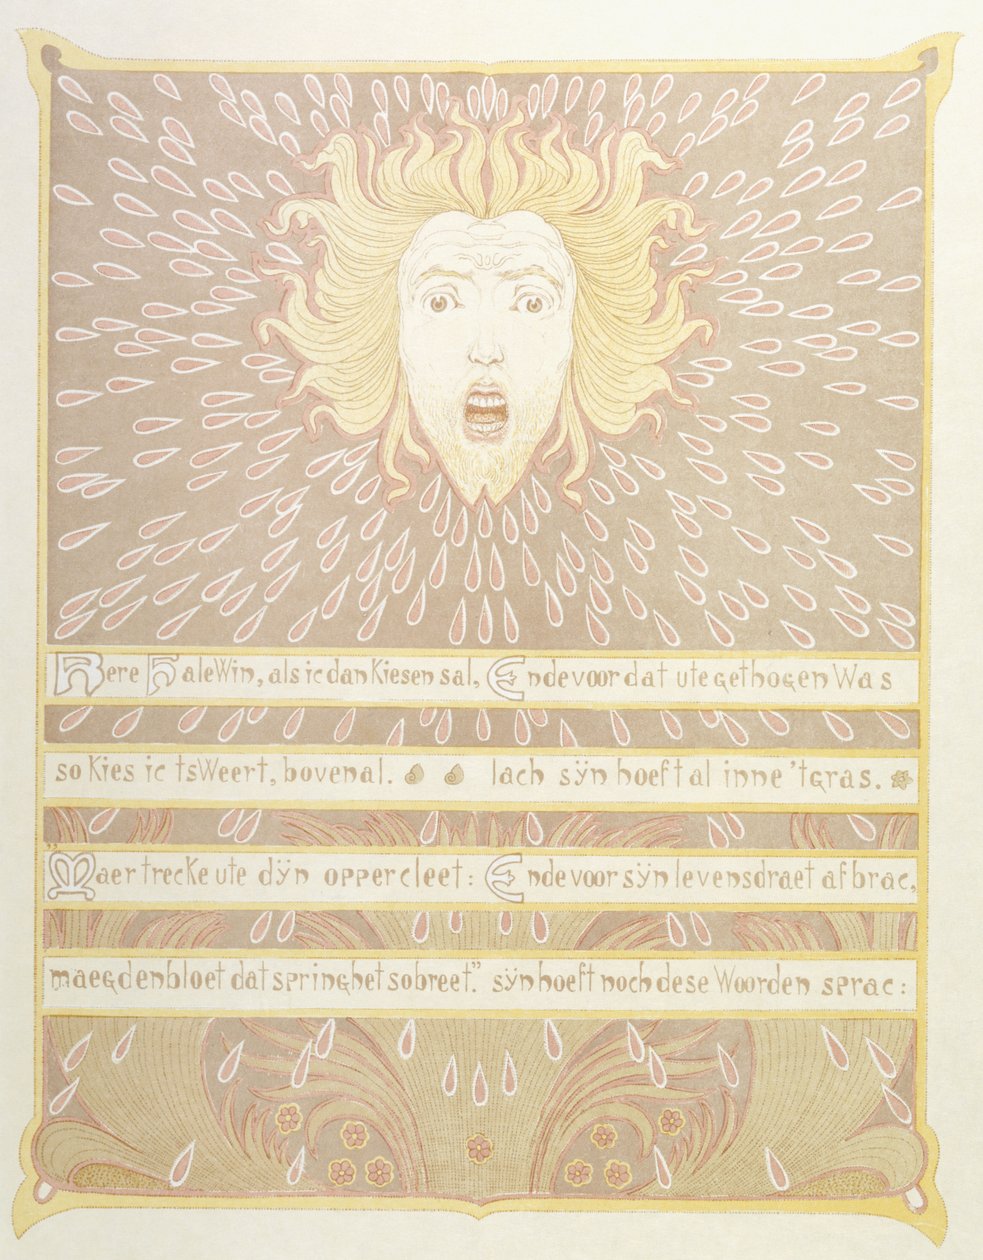 Here Halewin, als ic dan Kiesen sal, Ende voor dat utegethogen Was
so Kies ic tsWeert, boven al. lach sÿn hoeft al inne 'tgras.
"Maer trecke ute dÿn oppercleet: Ende voor sÿn levensdraet af brac,
maegdenbloet dat springhet so breet." sÿn hoeft noch dese Woorden sprac: